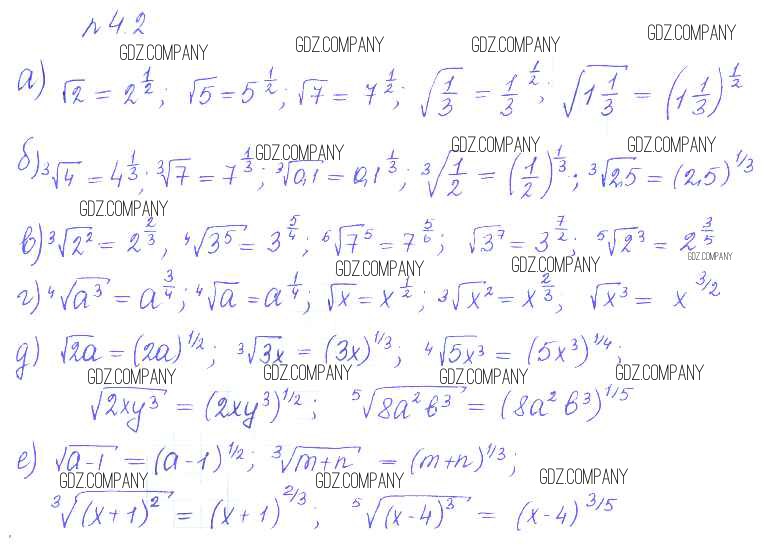 № 4.2
GDZ.COMPANY GDZ.COMPANY GDZ.COMPANY GDZ.COMPANY
а) √2 = 2^(1/2); √5 = 5^(1/2); √7 = 7^(1/2); √(1/3) = 1/3^(1/2); √(1 1/3) = (1 1/3)^(1/2)
GDZ.COMPANY GDZ.COMPANY GDZ.COMPANY
б) ³√4 = 4^(1/3); ³√7 = 7^(1/3); ³√0,1 = 0,1^(1/3); ³√(1/2) = (1/2)^(1/3); ³√2,5 = (2,5)^(1/3)
GDZ.COMPANY
в) ³√2² = 2^(2/3), ⁴√3⁵ = 3^(5/4); ⁶√7⁵ = 7^(5/6); √3⁷ = 3^(7/2); ⁵√2³ = 2^(3/5)
GDZ.COMPANY GDZ.COMPANY GDZ.COMPANY
г) ⁴√a³ = a^(3/4); ⁴√a = a^(1/4); √x = x^(1/2); ³√x² = x^(2/3), √x³ = x^(3/2)
д) √2a = (2a)^(1/2); ³√3x = (3x)^(1/3); ⁴√5x³ = (5x³)^(1/4);
GDZ.COMPANY GDZ.COMPANY GDZ.COMPANY GDZ.COMPANY
√2xy³ = (2xy³)^(1/2); ⁵√8a²b³ = (8a²b³)^(1/5)
е) √a-1 = (a-1)^(1/2); ³√m+n = (m+n)^(1/3);
GDZ.COMPANY GDZ.COMPANY GDZ.COMPANY
³√(x+1)² = (x+1)^(2/3); ⁵√(x-4)³ = (x-4)^(3/5)